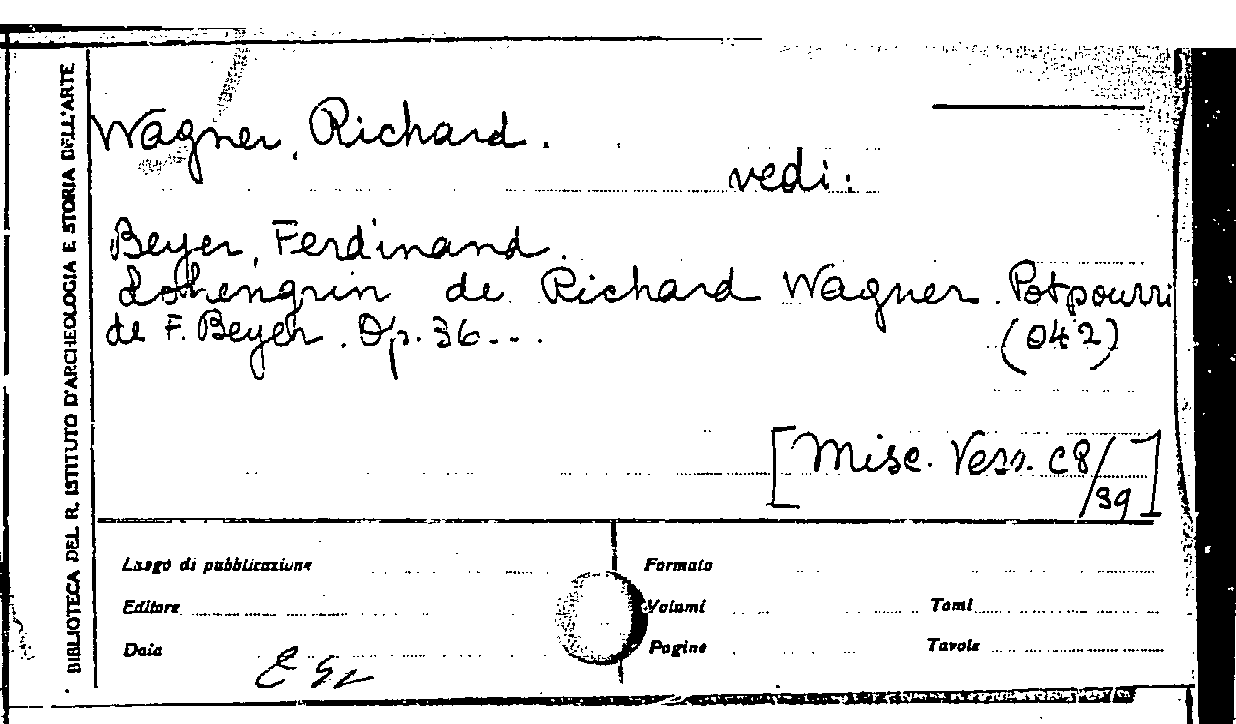 BIBLIOTECA DEL R. ISTITUTO D'ARCHEOLOGIA E STORIA DELL'ARTE
Wagner, Richard.
vedi:
Beyer, Ferdinand.
Lohengrin de Richard Wagner. Potpourri
de F. Beyer. Op. 36...
(042)
[Misc. Vess. C8/
/39]
Luogo di pubblicazione
Formato
Editore
Volumi
Tomi
Data
Pagine
Tavole